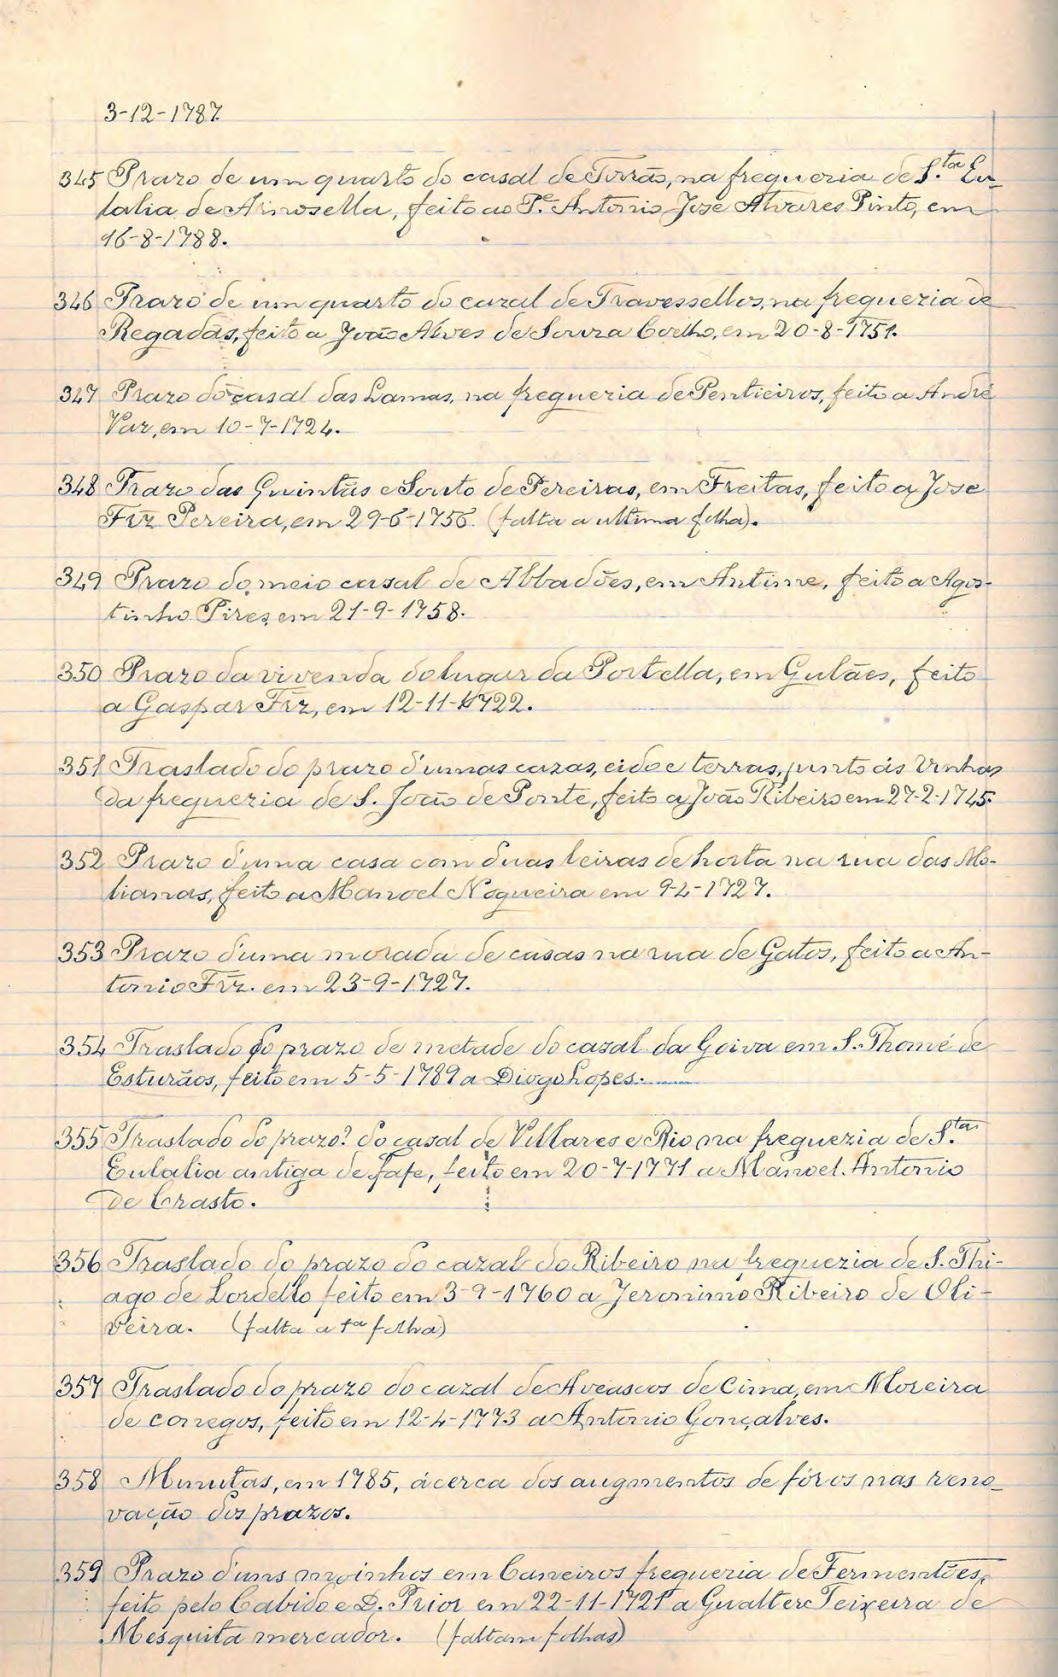 3-12-1787.
345 Prazo de um quarto do casal de Torrão, na freguezia de S.ta Eu-
lalia de Arnosella, feito ao P.e Antonio José Alvares Pinto, em
16-8-1788.
346 Prazo de um quarto do cazal de Travessellos, na freguezia de
Regadas, feito a João Alves de Souza Coelho, em 20-8-1751.
347 Prazo do casal das Lamas, na freguezia de Pentieiros, feito a André
Vaz, em 10-7-1724.
348 Prazo das Quintãs e Souto de Pereiras, em Freitas, feito a Jose
Frz Pereira, em 29-6-1756. (falta a ultima folha).
349 Prazo do meio casal de Abbadões, em Antime, feito a Agos-
tinho Pires, em 21-9-1758.
350 Prazo da vivenda do lugar da Portella, em Gulães, feito
a Gaspar Frz, em 12-11-1722.
351 Traslado do prazo d'umas cazas, eido e terras, junto ás Vinhas
da freguezia de S. João de Ponte, feito a João Ribeiro em 27-2-1745.
352 Prazo d'uma casa com duas leiras de horta na rua das Mo-
lianas, feito a Manoel Nogueira em 9-4-1727.
353 Prazo d'uma morada de casas na rua de Gatos, feito a An-
tonio Frz. em 23-9-1727.
354 Traslado do prazo de metade do cazal da Goiva em S. Thomé de
Esturãos, feito em 5-5-1789 a Diogo Lopes.
355 Traslado do prazo? do casal de Villares e Rio na freguezia de S.ta
Eulalia antiga de Fafe, feito em 20-7-1771 a Manoel Antonio
de Crasto.
356 Traslado do prazo do cazal do Ribeiro na freguezia de S. Thi-
ago de Lordello feito em 3-9-1760 a Jeronimo Ribeiro de Oli-
veira. (falta a 1a folha)
357 Traslado do prazo do cazal de Aveascos de Cima, em Moreira
de conegos, feito em 12-4-1773 a Antonio Gonçalves.
358 Minutas, em 1785, ácerca dos augmentos de fóros nas reno-
vação dos prazos.
359 Prazo d'uns moinhos em Caneiros freguezia de Fermentões,
feito pelo Cabido e D. Prior em 22-11-1721 a Gualter Teixeira de
Mesquita mercador. (faltam folhas)